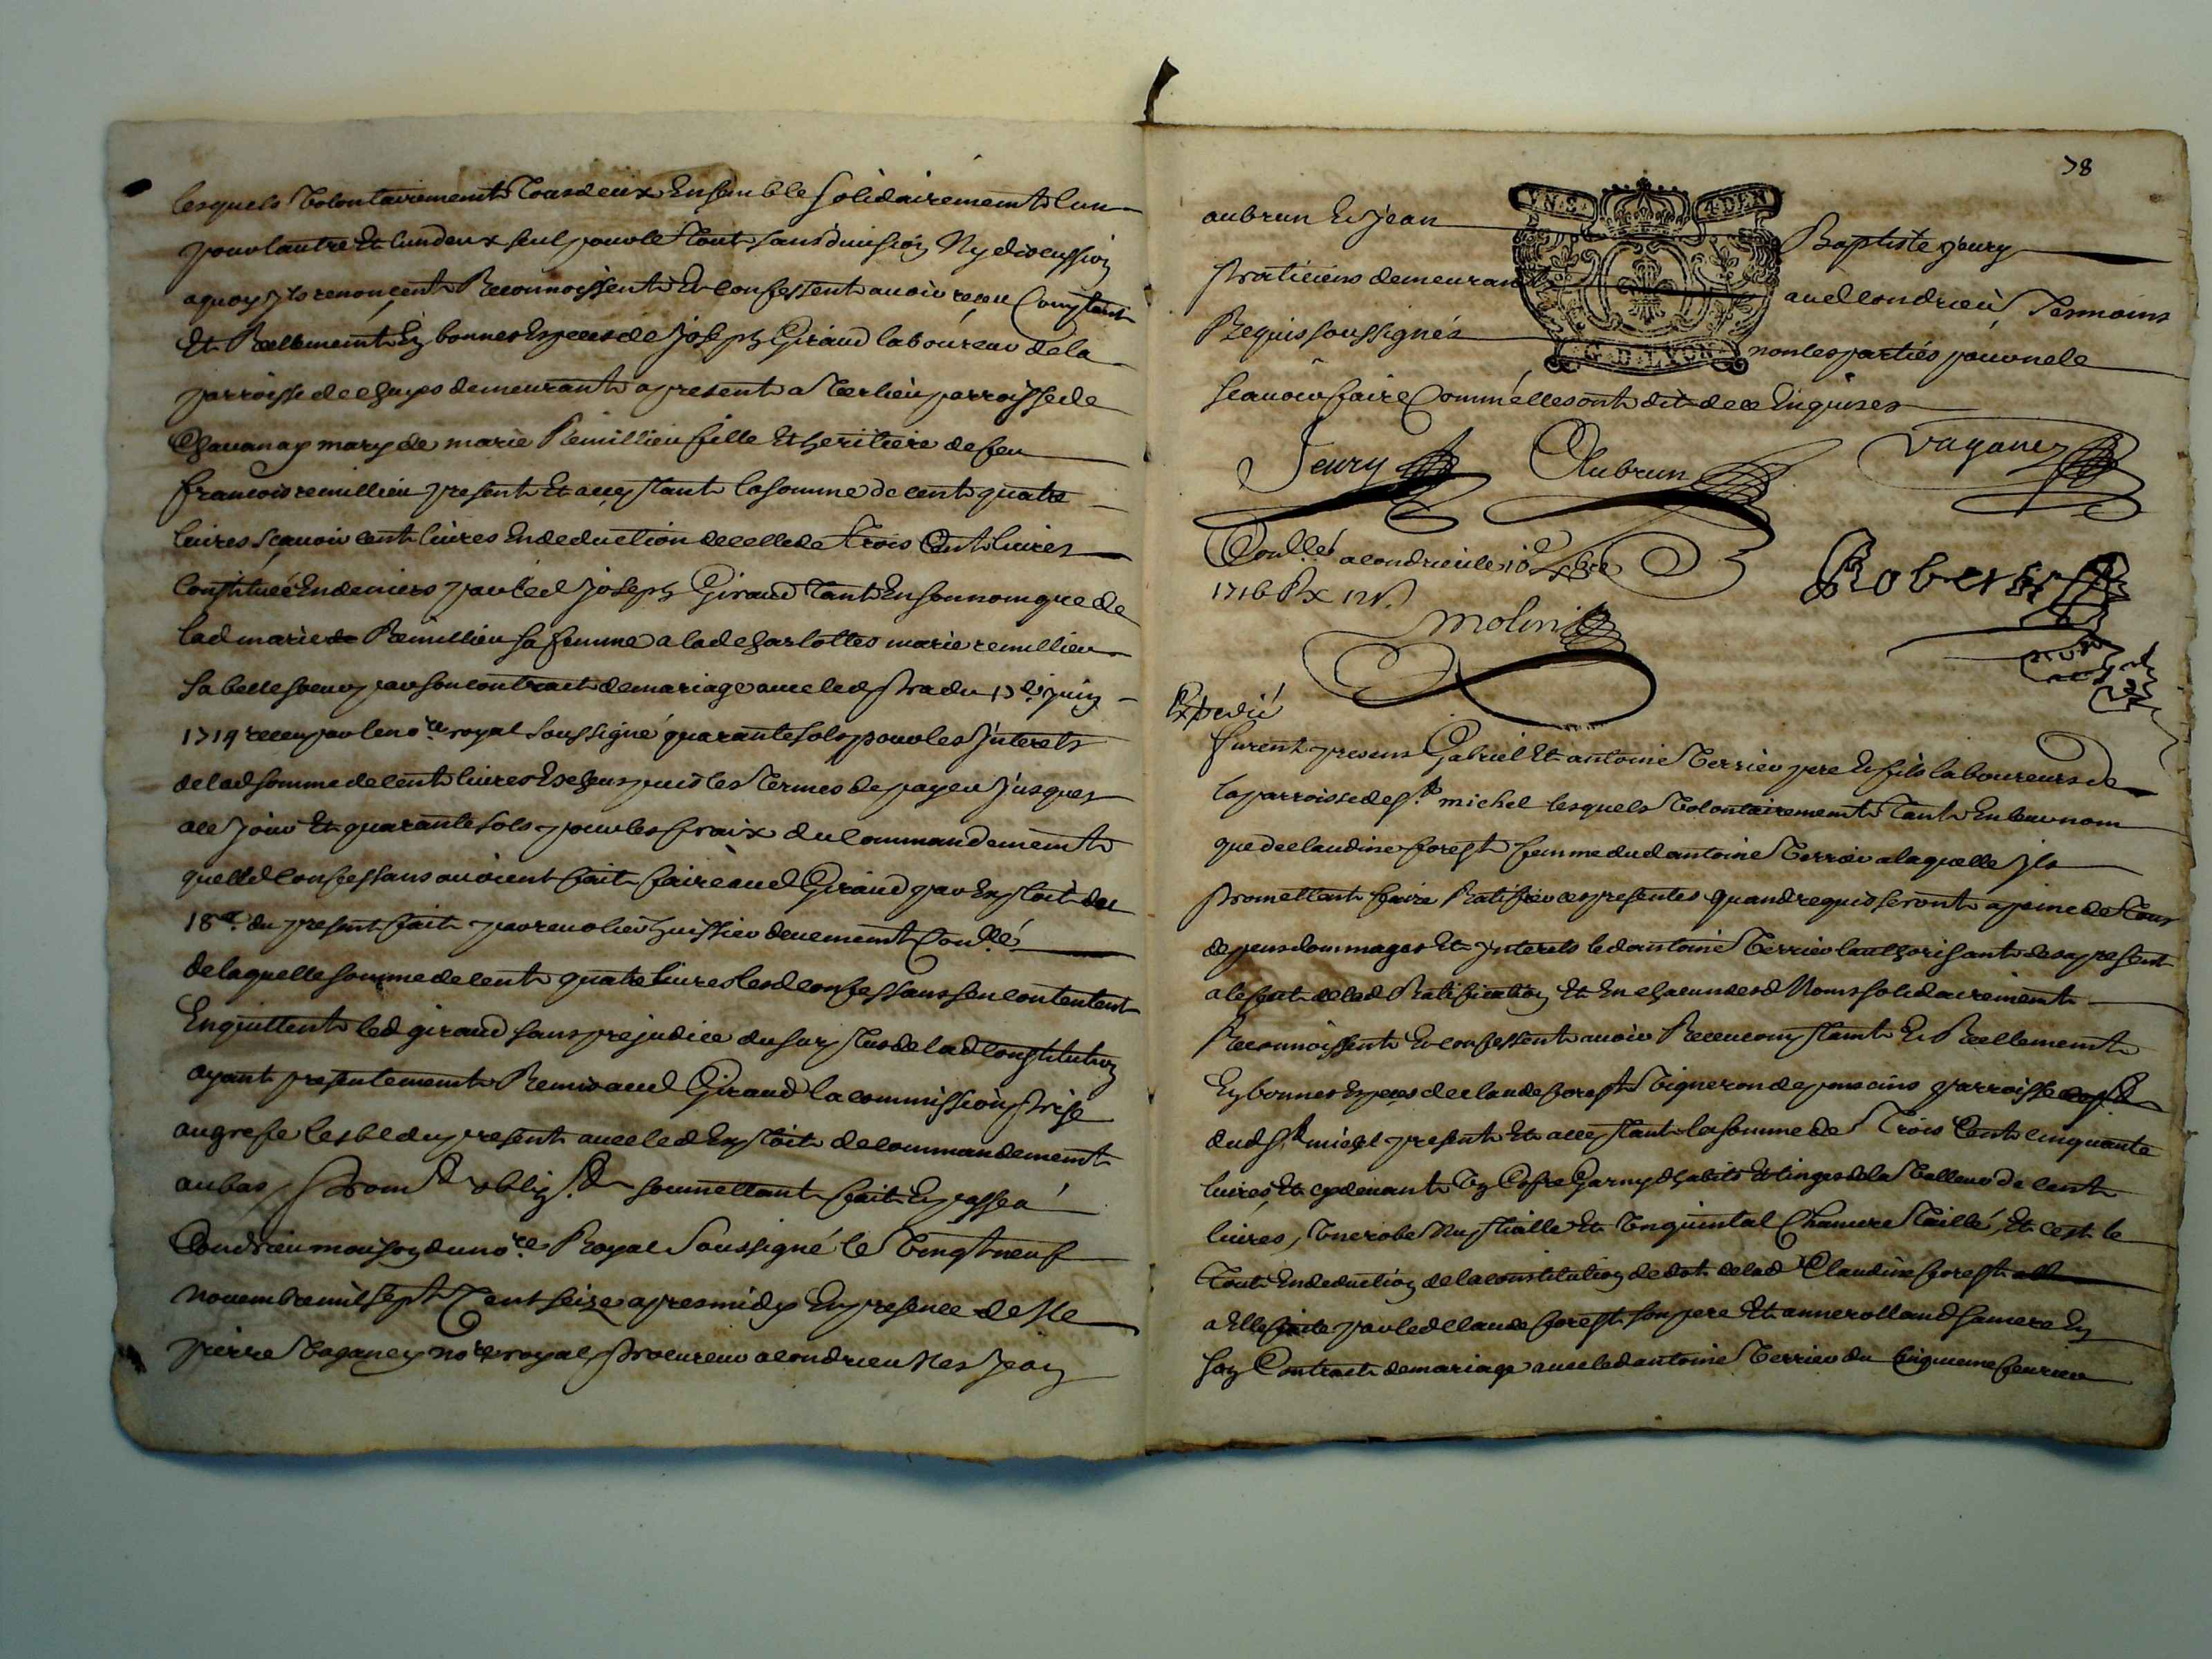 lesquels volontairement tous deux Ensemble solidairement lun
pour lautre Et lun deux seul pour le tout sans diuision Ny discussion
a quoy ils renoncent Reconnoissent Et confessent auoir receu Comptant
Et Reellement En bonnes Especes de Joseph Giraud laboureur de la
parroisse de chuyes demeurant a present a Verlieu parroisse de
Chauanay mary de marie Remillieu fille Et heritiere de feu
francois remillieu present Et acceptant la somme de cent quatre
liures scauoir cent liures En deduction de celle de trois Cent liures
Constituée En deniers par led Joseph Giraud tant En son nom que de
lad marie de Remillieu sa femme a lad charlottes marie remillieu
sa belle soeur par son contract de mariage auec led pra du 17e juin
1714 receu par le nore royal soussigné quarante sols pour les Jnterets
de lad somme de cent liures Escheus puis les termes de payer jusques
a ce jour Et quarante sols pour les fraix du Commandement
que lesd confessans auoient fait faire aud Giraud par Exploit du
18e du present fait par reuolier huissier deuement Conllé
de laquelle somme de cent quatre liures lesd confessans sen contentent
En quittent led giraud sans prejudice du surplus de lad Constitution
ayant presentement Remis aud Giraud la commission prise
au grefe les be du present auec led Exploit de commandement
au bas, prom.t oblig.t soumettant fait Et passé a
Condrieu maison du nore Royal Soussigné le vingt neuf
nouembre mil sept Cent seize apres midy En presence de Me
pierre Vaganey nore royal procureur a condrieu Mes Jean
78
aubrun Et jean Baptiste jeury
praticiens demeurant aud Condrieu Tesmoins
Requis soussignés non les parties pour ne le
scauoir faire Comme elles ont dit de ce Enquises
VN.S. 4.DEN
G.D.LYON
Jeury Aubrun Vaganey
Conllé a condrieu le 10e Xbre
1716 Rx 12s.
Molin
Robert
nore
Expedié
furent presens Gabriel Et antoine Verrier pere Et fils laboureurs de
la parroisse de st michel lesquels volontairement tant En leur nom
que de claudine forest femme dud antoine Verrier a laquelle ils
promettant faire Ratifier ces presentes quand requis seront a peine de tous
depens dommages Et jnterets led antoine Verrier lauthorisant des a present
a leffect de lad Ratification Et En chacun desd Noms solidairement
Reconnoissent Et confessent auoir Receu comptant Et Reellement
En bonnes Especes de claude forest Vigneron de poncins parroisse
dud st michel present Et acceptant la somme de Trois Cent cinquante
liures, Et cy deuant Vn Cofre Garny dhabits Et linges de la Valleur de cent
liures, Vne robe Nuptialle Et Vn quintal Chanure taillé, Et cest le
Tout En deduction de la constitution de dot de lad Claudine forest
a Elle faite par led Claude forest son pere Et anne rolland sa mere En
son Contract de mariage auec led antoine Verrier du cinquieme feurier